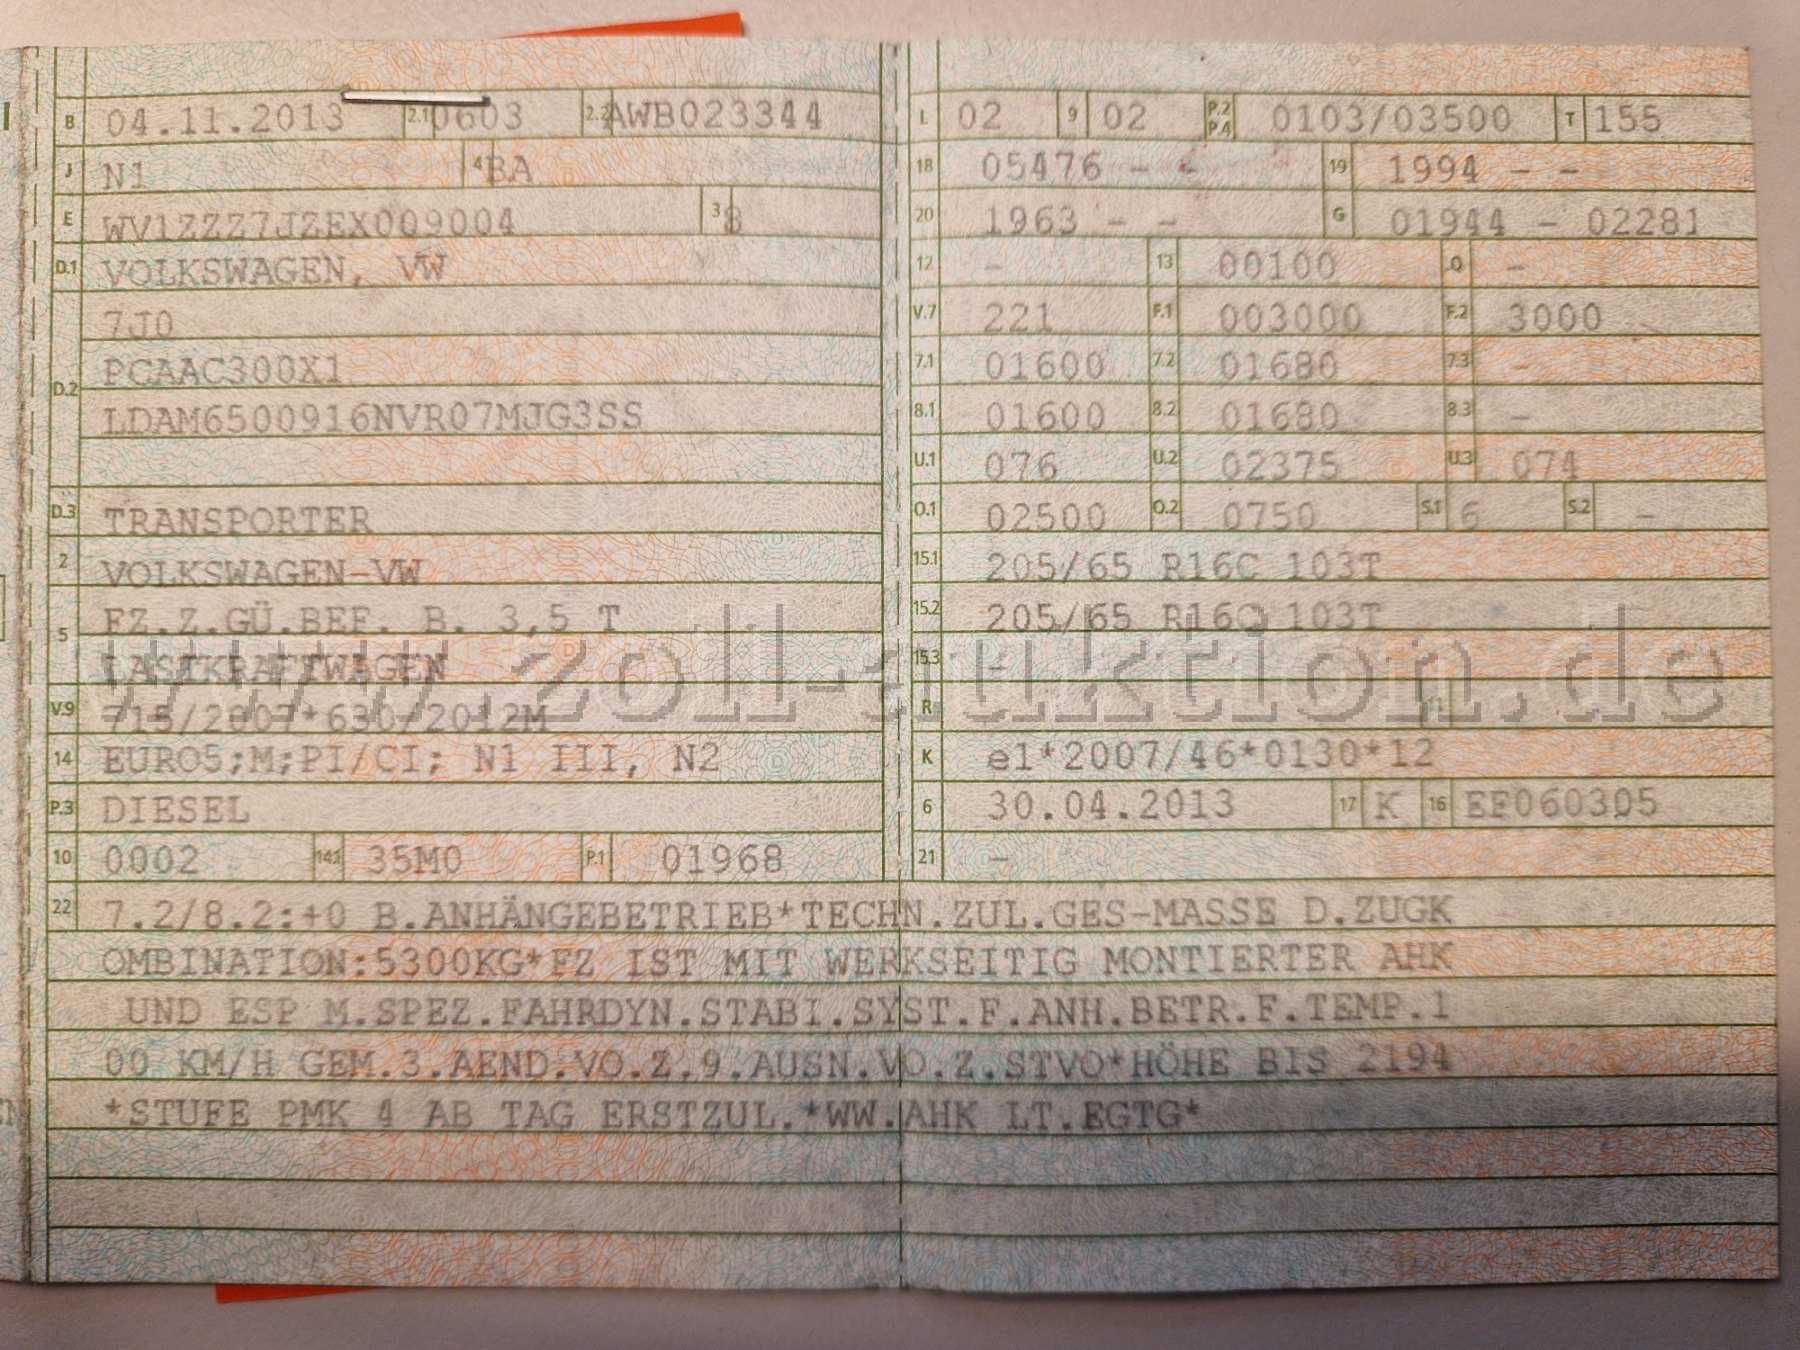 B 04.11.2013 2.1 0603 2.2 AWB023344
J N1 4 BA
E WV1ZZZ7JZEX009004 3 8
D.1 VOLKSWAGEN, VW
7J0
D.2 PCAAC300X1
LDAM6500916NVR07MJG3SS
D.3 TRANSPORTER
2 VOLKSWAGEN-VW
5 FZ.Z.GÜ.BEF. B. 3,5 T
LASTKRAFTWAGEN
V.9 715/2007*630/2012M
14 EURO5;M;PI/CI; N1 III, N2
P.3 DIESEL
10 0002 14.1 35M0 P.1 01968
L 02 9 02 P.2 P.4 0103/03500 T 155
18 05476 - - 19 1994 - -
20 1963 - - G 01944 - 02281
12 - 13 00100 Q -
V.7 221 F.1 003000 F.2 3000
7.1 01600 7.2 01680 7.3 -
8.1 01600 8.2 01680 8.3 -
U.1 076 U.2 02375 U.3 074
O.1 02500 O.2 0750 S.1 6 S.2 -
15.1 205/65 R16C 103T
15.2 205/65 R16C 103T
15.3 -
R 11
K e1*2007/46*0130*12
6 30.04.2013 17 K 16 EF060305
21 -
22 7.2/8.2:+0 B.ANHÄNGEBETRIEB*TECHN.ZUL.GES-MASSE D.ZUGK
OMBINATION:5300KG*FZ IST MIT WERKSEITIG MONTIERTER AHK
UND ESP M.SPEZ.FAHRDYN.STABI.SYST.F.ANH.BETR.F.TEMP.1
00 KM/H GEM.3.AEND.VO.Z.9.AUSN.VO.Z.STVO*HÖHE BIS 2194
*STUFE PMK 4 AB TAG ERSTZUL.*WW.AHK LT.EGTG*
www.zoll-auktion.de